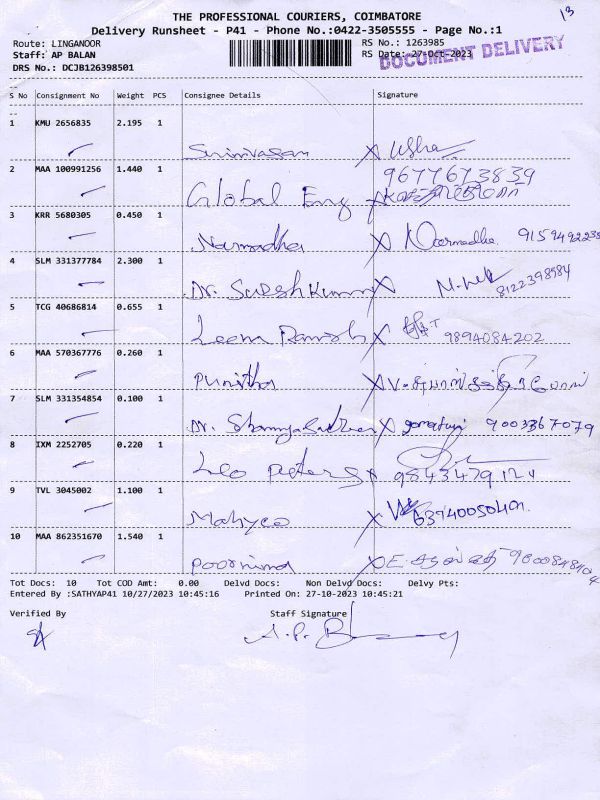 13
THE PROFESSIONAL COURIERS, COIMBATORE
Delivery Runsheet - P41 - Phone No.:0422-3505555 - Page No.:1
Route: LINGANOOR RS No.: 1263985
Staff: AP BALAN RS Date: 27-Oct-2023
DOCUMENT DELIVERY
DRS No.: DCJB126398501
S No Consignment No Weight PCS Consignee Details Signature
1 KMU 2656835 2.195 1
Srinivasan X Usha
2 MAA 100991256 1.440 1 9677673839
Global Eng X
3 KRR 5680305 0.450 1
Narmadha X Narmadha 9159492238
4 SLM 331377784 2.300 1
Dr. Suresh Kumar X 8122398984
5 TCG 40686814 0.655 1
X 9894084202
6 MAA 570367776 0.260 1
Punitha X
7 SLM 331354854 0.100 1
Dr. X gomathi 9003367079
8 IXM 2252705 0.220 1
Leo Peters X 9843479124
9 TVL 3045002 1.100 1
Mahyco X 6374005040
10 MAA 862351670 1.540 1
Poornima X
Tot Docs: 10 Tot COD Amt: 0.00 Delvd Docs: Non Delvd Docs: Delvy Pts:
Entered By :SATHYAP41 10/27/2023 10:45:16 Printed On: 27-10-2023 10:45:21
Verified By Staff Signature
A.P.